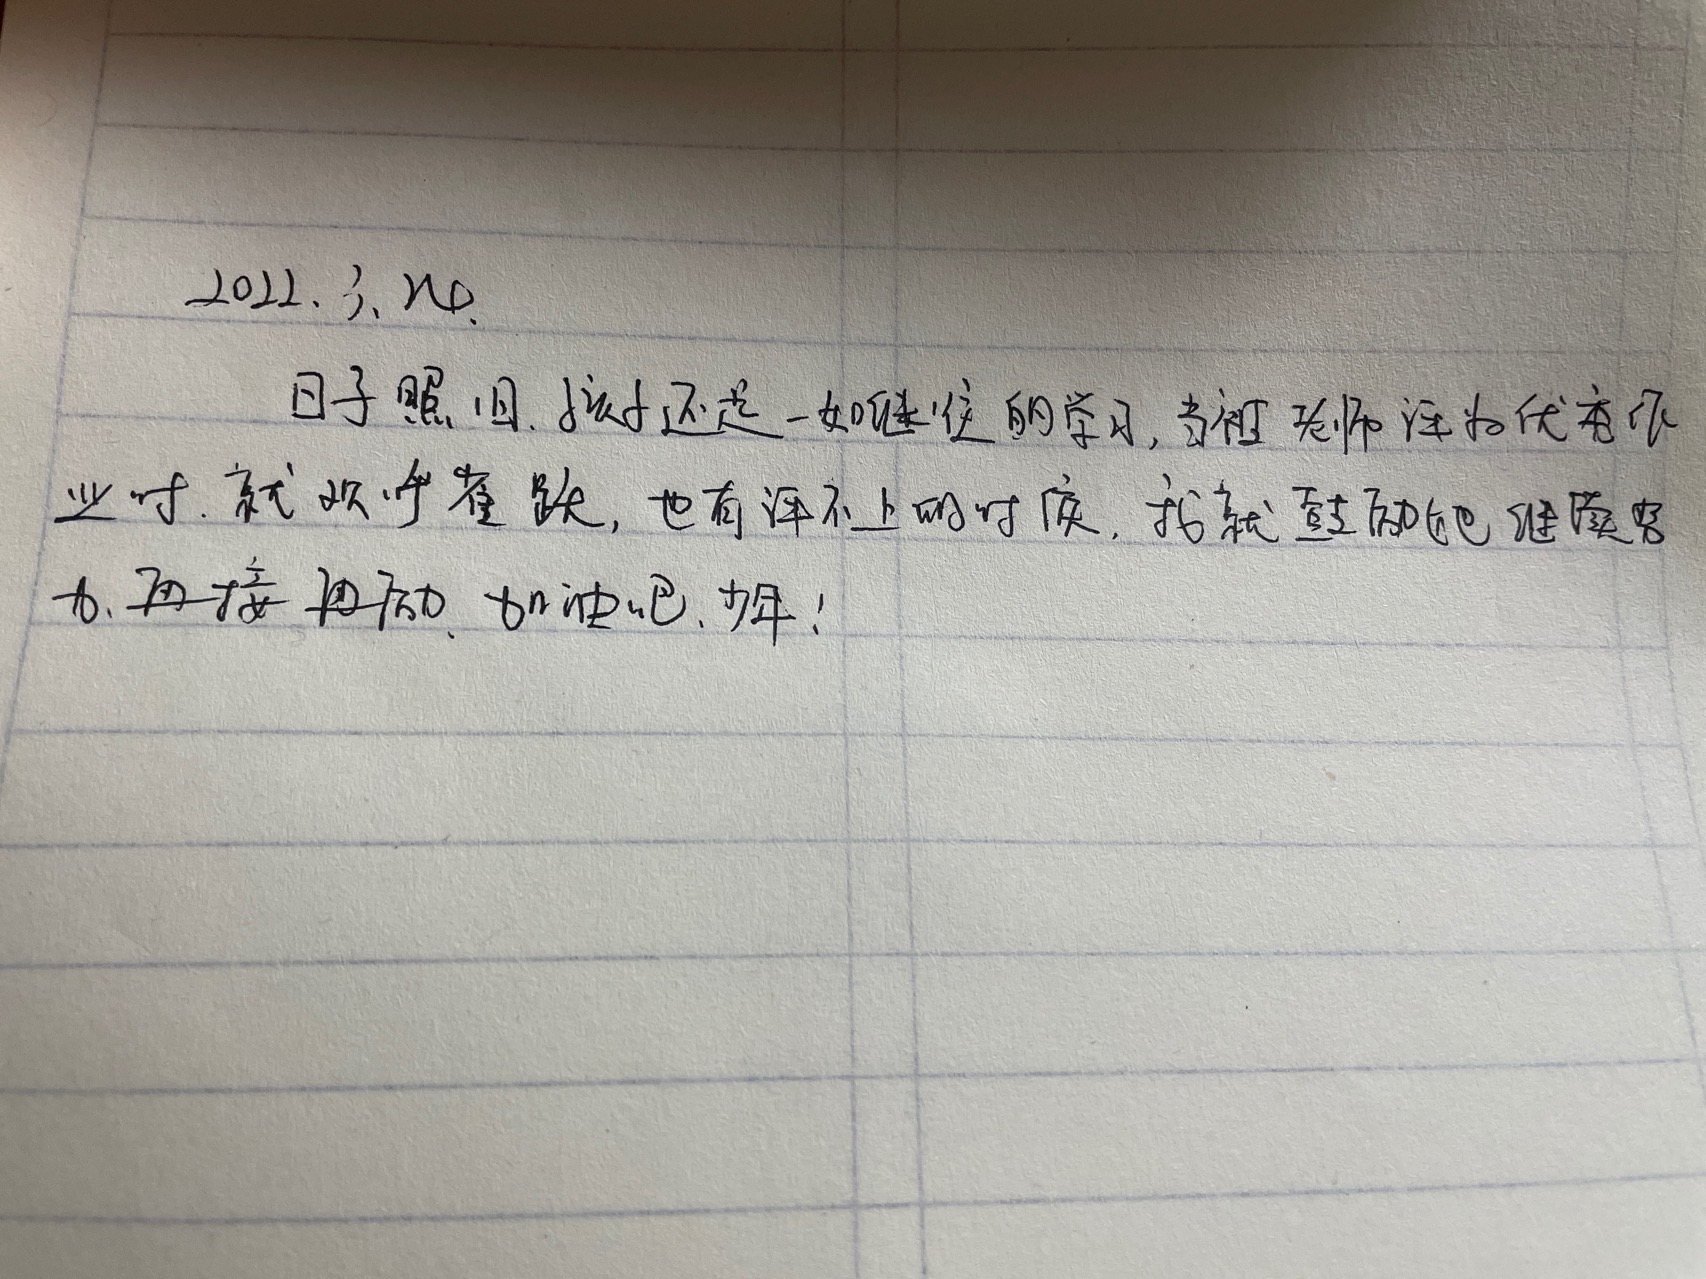 2022.3.
日子照旧.孩子还是一如继往的学习,当被老师评为优秀作
业时.就欢呼雀跃,也有评不上的时候.我就鼓励他继续努
力.再接再励.加油吧.少年!